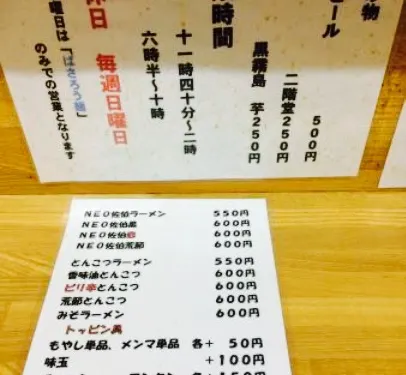 物
ール
５００円
二階堂２５０円
黒霧島　芋２５０円
時間
十一時四十分～二時
六時半～十時
休日　毎週日曜日
曜日は「ばさろう麺」
のみでの営業となります
ＮＥＯ佐伯ラーメン　５５０円
ＮＥＯ佐伯黒　６００円
ＮＥＯ佐伯　６００円
ＮＥＯ佐伯荒節　６００円
とんこつラーメン　５５０円
香味油とんこつ　６００円
ピリ辛とんこつ　６００円
荒節とんこつ　６００円
みそラーメン　６００円
トッピン具
もやし単品、メンマ単品　各＋　５０円
味玉　＋１００円